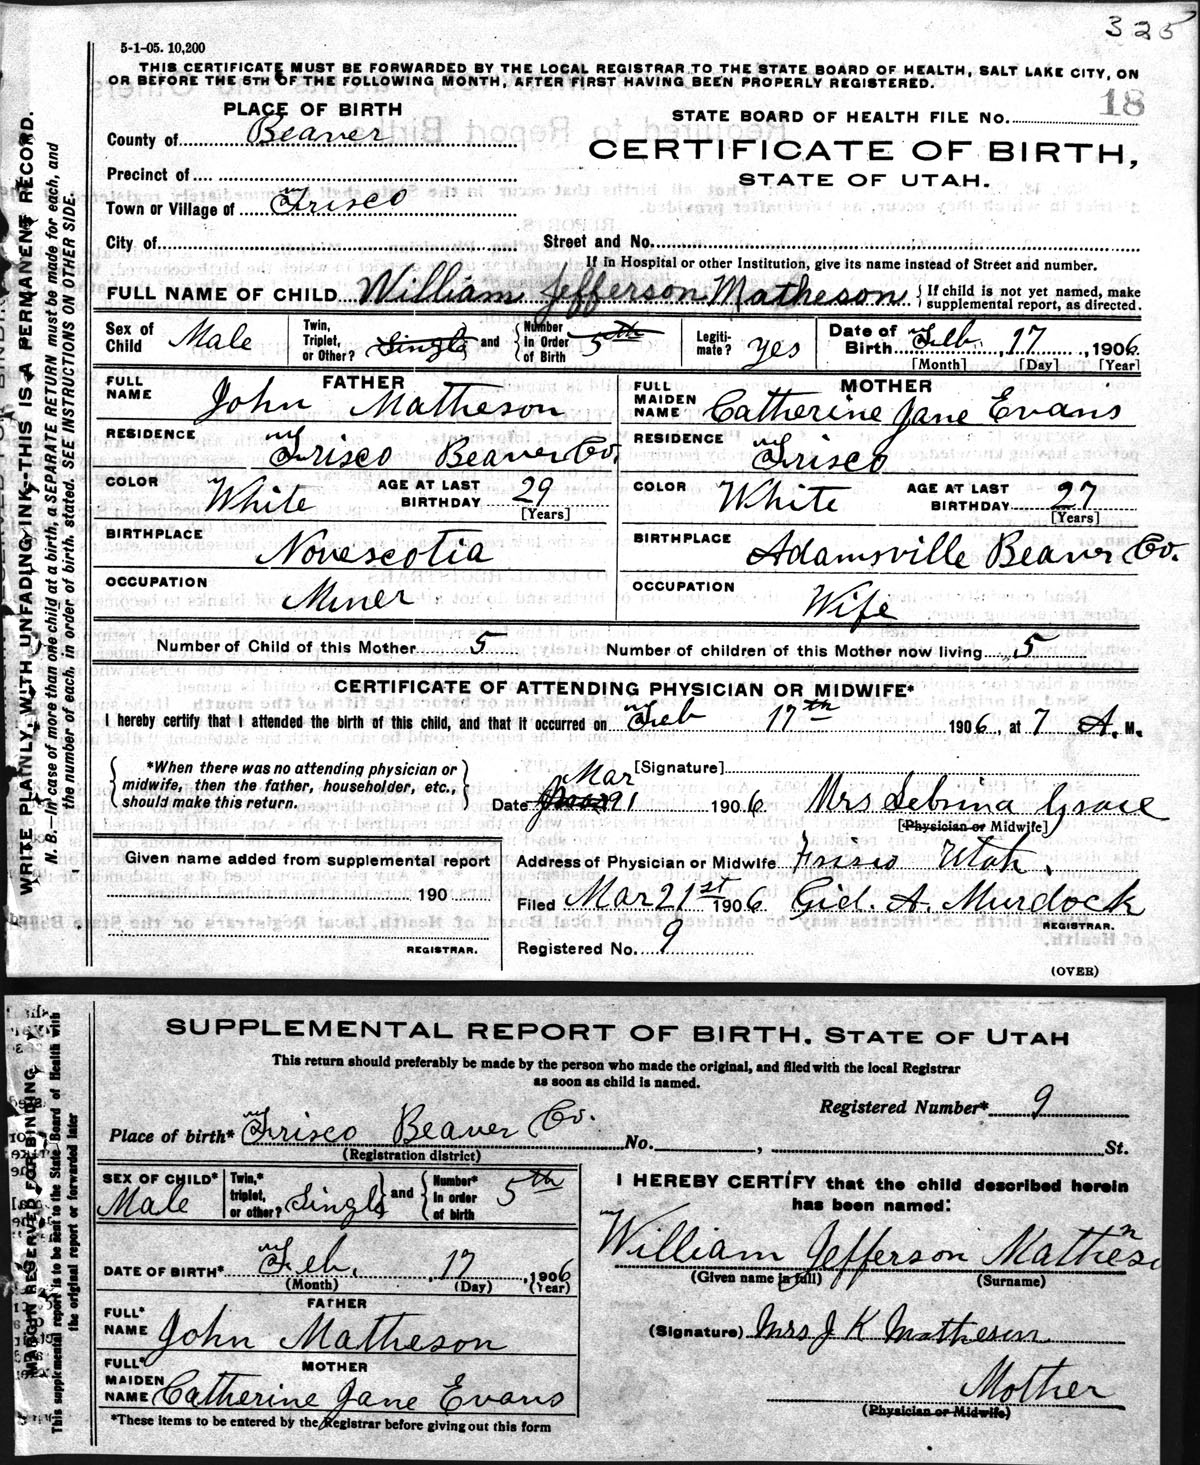 325
5-1-05. 10,200
THIS CERTIFICATE MUST BE FORWARDED BY THE LOCAL REGISTRAR TO THE STATE BOARD OF HEALTH, SALT LAKE CITY, ON
OR BEFORE THE 5TH OF THE FOLLOWING MONTH, AFTER FIRST HAVING BEEN PROPERLY REGISTERED.
WRITE PLAINLY WITH UNFADING INK--THIS IS A PERMANENT RECORD.
N. B.—In case of more than one child at a birth, a SEPARATE RETURN must be made for each, and
the number of each, in order of birth, stated. SEE INSTRUCTIONS ON OTHER SIDE.
PLACE OF BIRTH
STATE BOARD OF HEALTH FILE NO. 18
County of Beaver
CERTIFICATE OF BIRTH,
STATE OF UTAH.
Precinct of
Town or Village of Frisco
City of Street and No.
If in Hospital or other Institution, give its name instead of Street and number.
FULL NAME OF CHILD William Jefferson Matheson { If child is not yet named, make
supplemental report, as directed.
Sex of Child Male Twin, Triplet, or Other? Single and Number in Order of Birth 5th Legiti- mate? yes Date of Birth Feb. 17, 1906
[Month] [Day] [Year]
FATHER MOTHER
FULL NAME John Matheson FULL MAIDEN NAME Catherine Jane Evans
RESIDENCE Frisco Beaver Co. RESIDENCE Frisco
COLOR White AGE AT LAST BIRTHDAY 29 [Years] COLOR White AGE AT LAST BIRTHDAY 27 [Years]
BIRTHPLACE Novescotia BIRTHPLACE Adamsville Beaver Co.
OCCUPATION Miner OCCUPATION Wife
Number of Child of this Mother 5 Number of children of this Mother now living 5
CERTIFICATE OF ATTENDING PHYSICIAN OR MIDWIFE*
I hereby certify that I attended the birth of this child, and that it occurred on Feb 17th 1906, at 7 A. M.
*When there was no attending physician or
midwife, then the father, householder, etc.,
should make this return.
[Signature]
Date Mar 1906 Mrs Sebrina
[Physician or Midwife]
Given name added from supplemental report
190
REGISTRAR.
Address of Physician or Midwife Frisco Utah.
Filed Mar 21st 1906 Gid. A. Murdock
REGISTRAR.
Registered No. 9
(OVER)
SUPPLEMENTAL REPORT OF BIRTH. STATE OF UTAH
This return should preferably be made by the person who made the original, and filed with the local Registrar
as soon as child is named.
MARGIN RESERVED FOR BINDING
This supplemental report is to be sent to the State Board of Health with
the original report or forwarded later
Registered Number* 9
Place of birth* Frisco Beaver Co. No. , St.
(Registration district)
SEX OF CHILD* Male Twin,* triplet, or other? Single and Number* in order of birth 5th
DATE OF BIRTH* Feb. 17, 1906
(Month) (Day) (Year)
FATHER
FULL* NAME John Matheson
MOTHER
FULL* MAIDEN NAME Catherine Jane Evans
*These items to be entered by the Registrar before giving out this form
I HEREBY CERTIFY that the child described herein
has been named:
William Jefferson Matheson
(Given name in full) (Surname)
(Signature) Mrs J K Matheson
Mother
(Physician or Midwife)